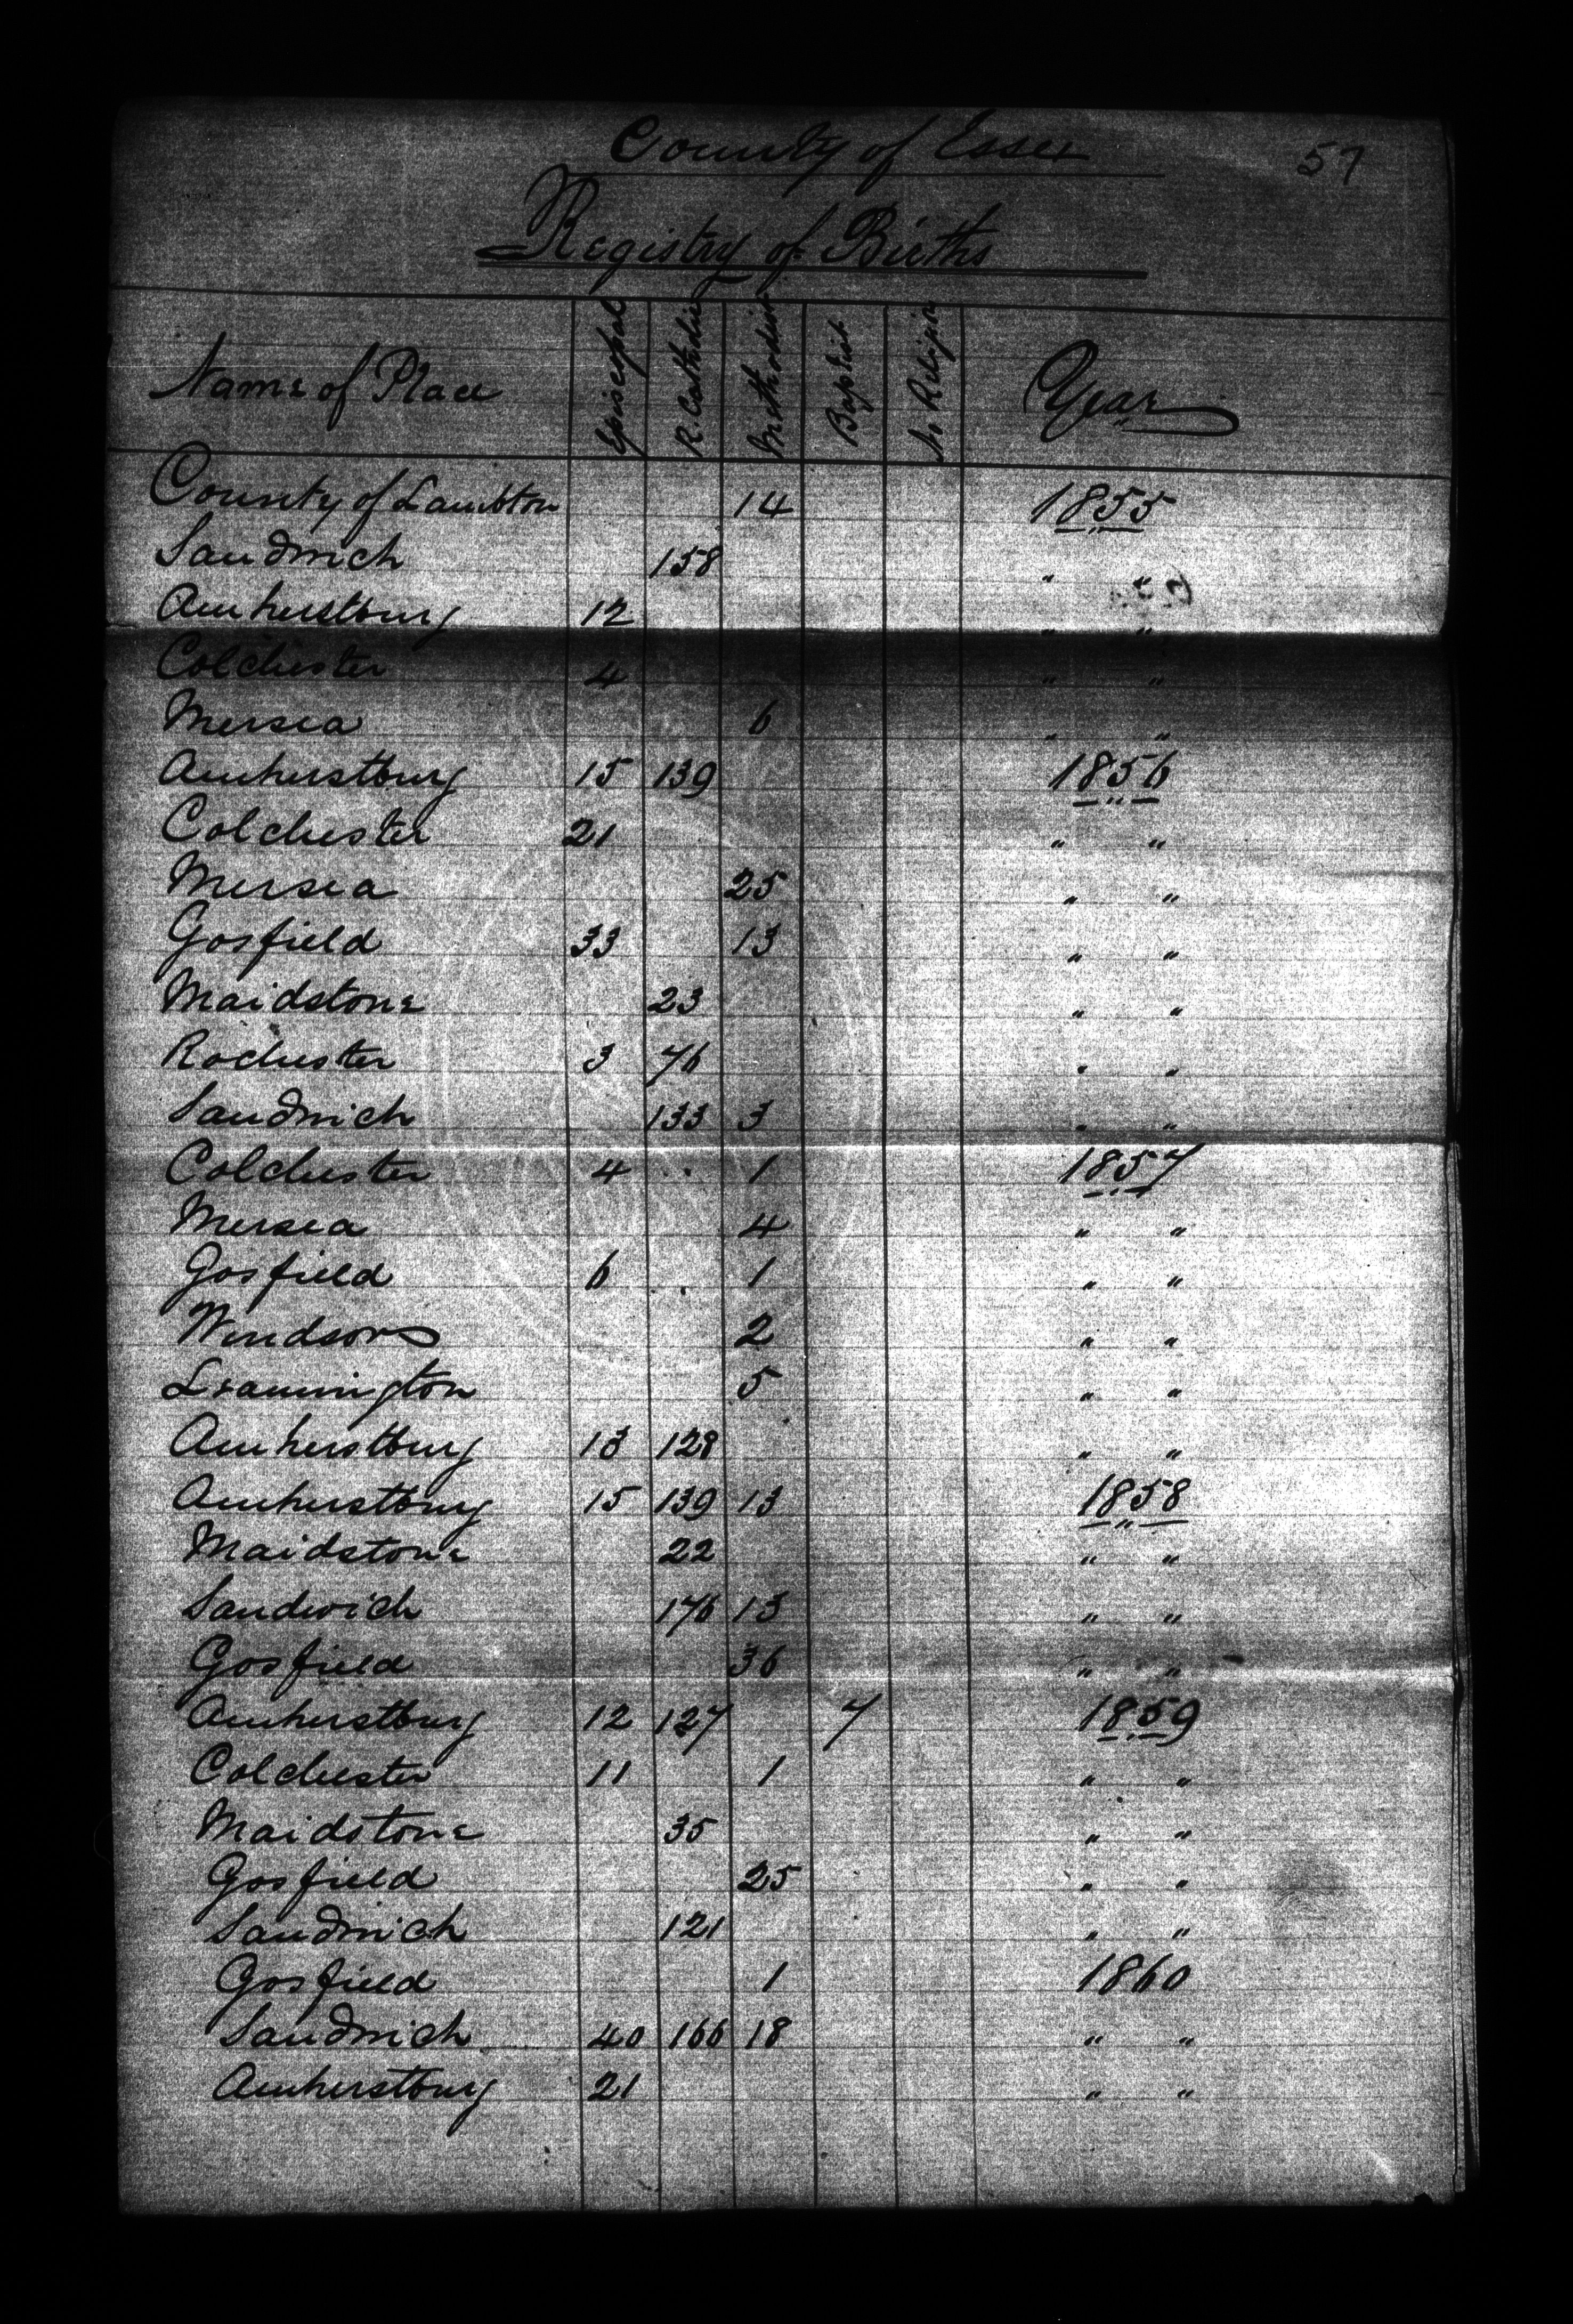 County of Essex
57
Registry of Births
Name of Place Episcopal R. Catholic Methodist Baptist No Religion Year
County of Lambton 14 1855
Sandwich 158 " "
Amherstburg 12 " "
Colchester 4 " "
Mersea 6 " "
Amherstburg 15 139 1856
Colchester 21 " "
Mersea 25 " "
Gosfield 33 13 " "
Maidstone 23 " "
Rochester 3 76 " "
Sandwich 133 3 " "
Colchester 4 1 1857
Mersea 4 " "
Gosfield 6 1 " "
Windsor 2 " "
Leamington 5 " "
Amherstburg 13 128 " "
Amherstburg 15 139 13 1858
Maidstone 22 " "
Sandwich 176 13 " "
Gosfield 36 " "
Amherstburg 12 127 7 1859
Colchester 11 1 " "
Maidstone 35 " "
Gosfield 25 " "
Sandwich 121 " "
Gosfield 1 1860
Sandwich 40 166 18 " "
Amherstburg 21 " "